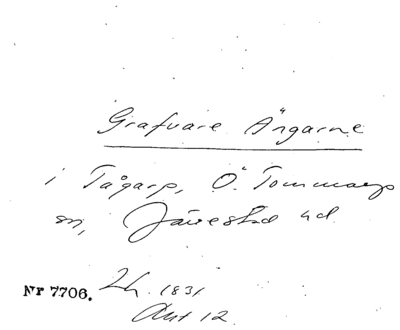 Grafvare Ängarne
i Tågarp, Ö. Tommarp
sn, Järrestad hd
Nr 7706. 1831
Akt 12